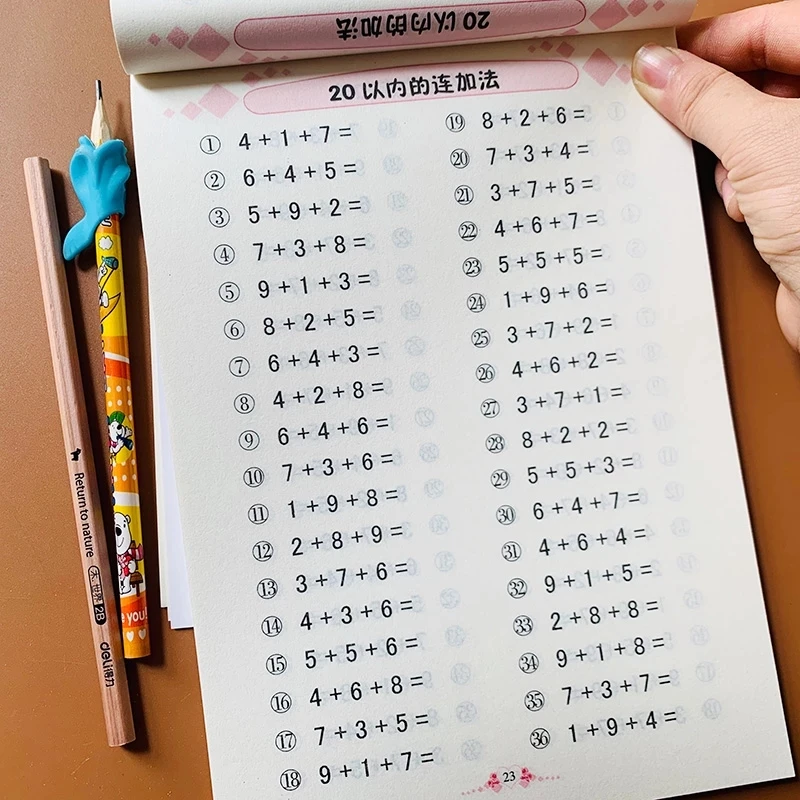 20以内的加法
20以内的连加法
① 4+1+7=
② 6+4+5=
③ 5+9+2=
④ 7+3+8=
⑤ 9+1+3=
⑥ 8+2+5=
⑦ 6+4+3=
⑧ 4+2+8=
⑨ 6+4+6=
⑩ 7+3+6=
⑪ 1+9+8=
⑫ 2+8+9=
⑬ 3+7+6=
⑭ 4+3+6=
⑮ 5+5+6=
⑯ 4+6+8=
⑰ 7+3+5=
⑱ 9+1+7=
⑲ 8+2+6=
⑳ 7+3+4=
㉑ 3+7+5=
㉒ 4+6+7=
㉓ 5+5+5=
㉔ 1+9+6=
㉕ 3+7+2=
㉖ 4+6+2=
㉗ 3+7+1=
㉘ 8+2+2=
㉙ 5+5+3=
㉚ 6+4+7=
㉛ 4+6+4=
㉜ 9+1+5=
㉝ 2+8+8=
㉞ 9+1+8=
㉟ 7+3+7=
㊱ 1+9+4=
23
Return to nature
2B
deli得力
e you!